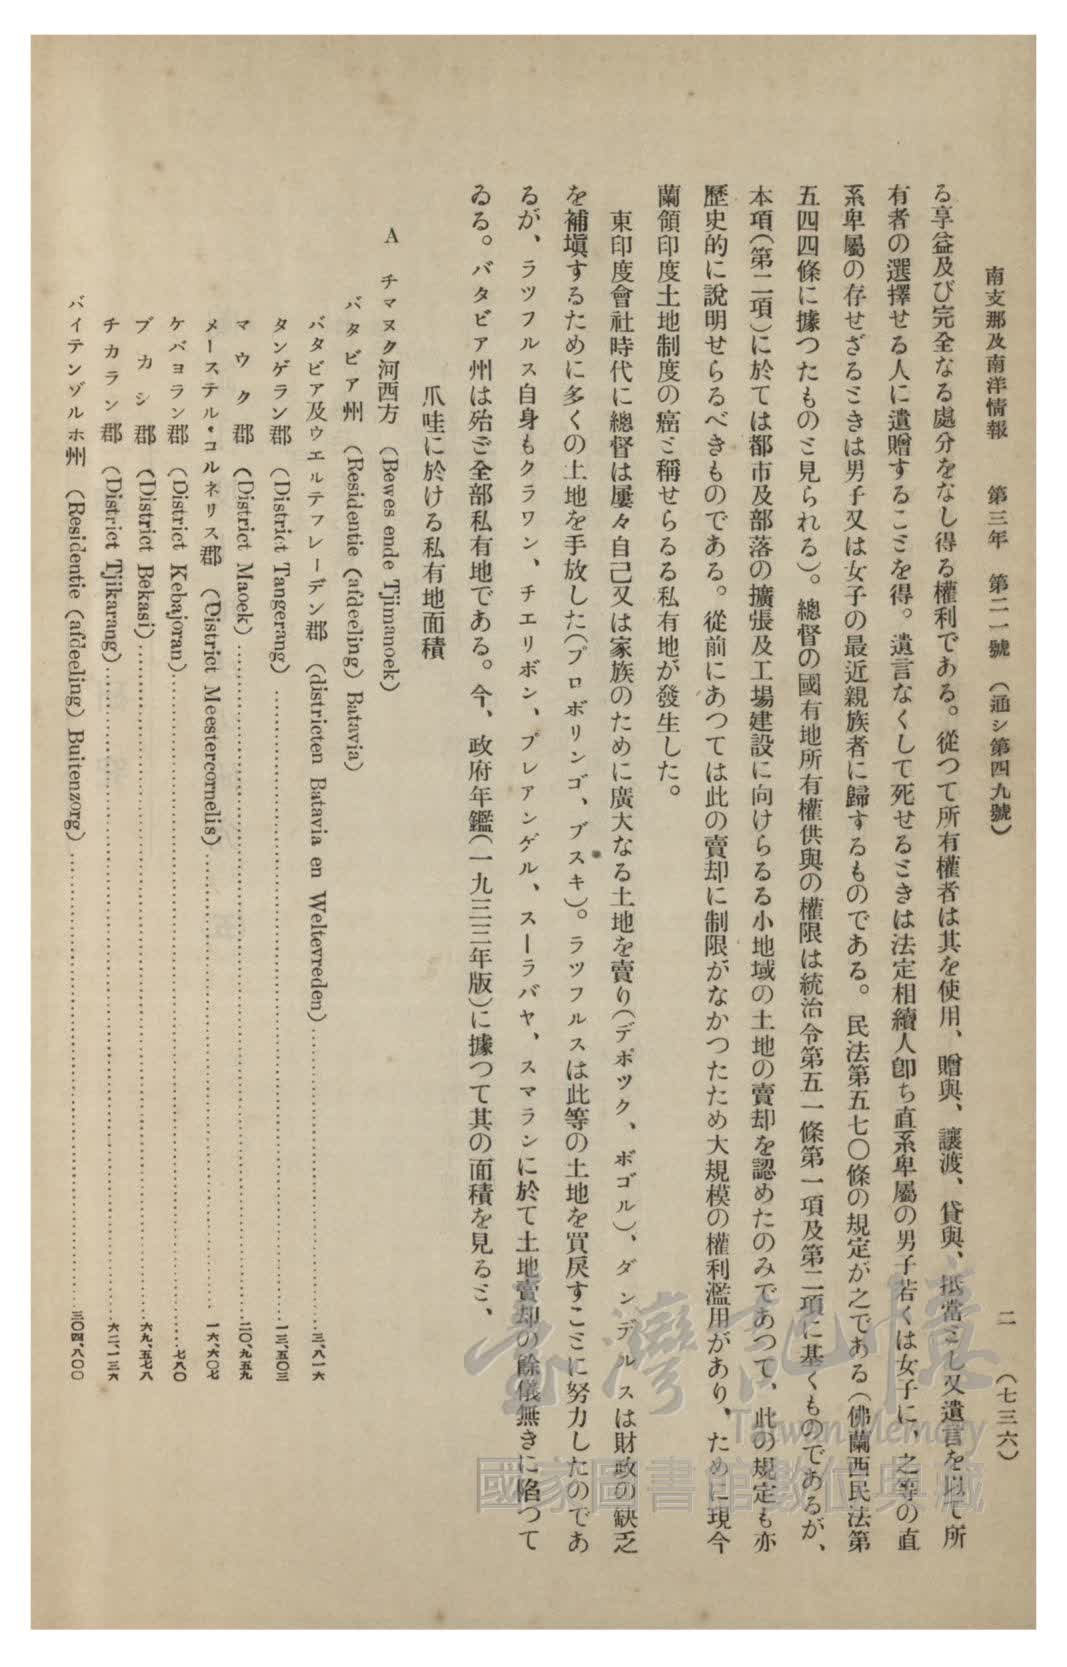 南支那及南洋情報　第三年　第二一號　(通シ第四九號)　二　(七三六)
る享益及び完全なる處分をなし得る權利である。從つて所有權者は其を使用、贈與、讓渡、貸與、抵當ミし又遺言を以て所
有者の選擇せる人に遺贈するこミを得。遺言なくして死せるミきは法定相續人卽ち直系卑屬の男子若くは女子に、之等の直
系卑屬の存せざるミきは男子又は女子の最近親族者に歸するものである。民法第五七〇條の規定が之である(佛蘭西民法第
五四四條に據つたものミ見られる)。總督の國有地所有權供與の權限は統治令第五一條第一項及第二項に基くものであるが、
本項(第二項)に於ては都市及部落の擴張及工場建設に向けらるる小地域の土地の賣却を認めたのみであつて、此の規定も亦
歷史的に說明せらるべきものである。從前にあつては此の賣却に制限がなかつたため大規模の權利濫用があり、ために現今
蘭領印度土地制度の癌ミ稱せらるる私有地が發生した。
東印度會社時代に總督は屢々自己又は家族のために廣大なる土地を賣り(デポツク、ボゴル)、ダンデルスは財政の缺乏
を補塡するために多くの土地を手放した(プロボリンゴ、ブスキ)。ラツフルスは此等の土地を買戾すこミに努力したのであ
るが、ラツフルス自身もクラワン、チエリボン、プレアンゲル、スーラバヤ、スマランに於て土地賣却の餘儀無きに陷つて
ゐる。バタビア州は殆ご全部私有地である。今、政府年鑑(一九三三年版)に據つて其の面積を見るミ、
爪哇に於ける私有地面積
A　チマヌク河西方　(Bewes ende Tjimanoek)
バタビア州　(Residentie (afdeeling) Batavia)
バタビア及ウエルテフレーデン郡　(districten Batavia en Weltevreden)……三、八一六
タンゲラン郡　(District Tangerang)……一三、五〇三
マウク郡　(District Maoek)……二〇、九五九
メーステル・コルネリス郡　(District Meestercornelis)……一六、六〇七
ケバヨラン郡　(District Kebajoran)……七八〇
ブカシ郡　(District Bekasi)……六九、五七八
チカラン郡　(District Tjikarang)……六二、一三六
バイテンゾルホ州　(Residentie (afdeeling) Buitenzorg)……三〇四、八〇〇
臺灣記憶
Taiwan Memory
國家圖書館數位典藏